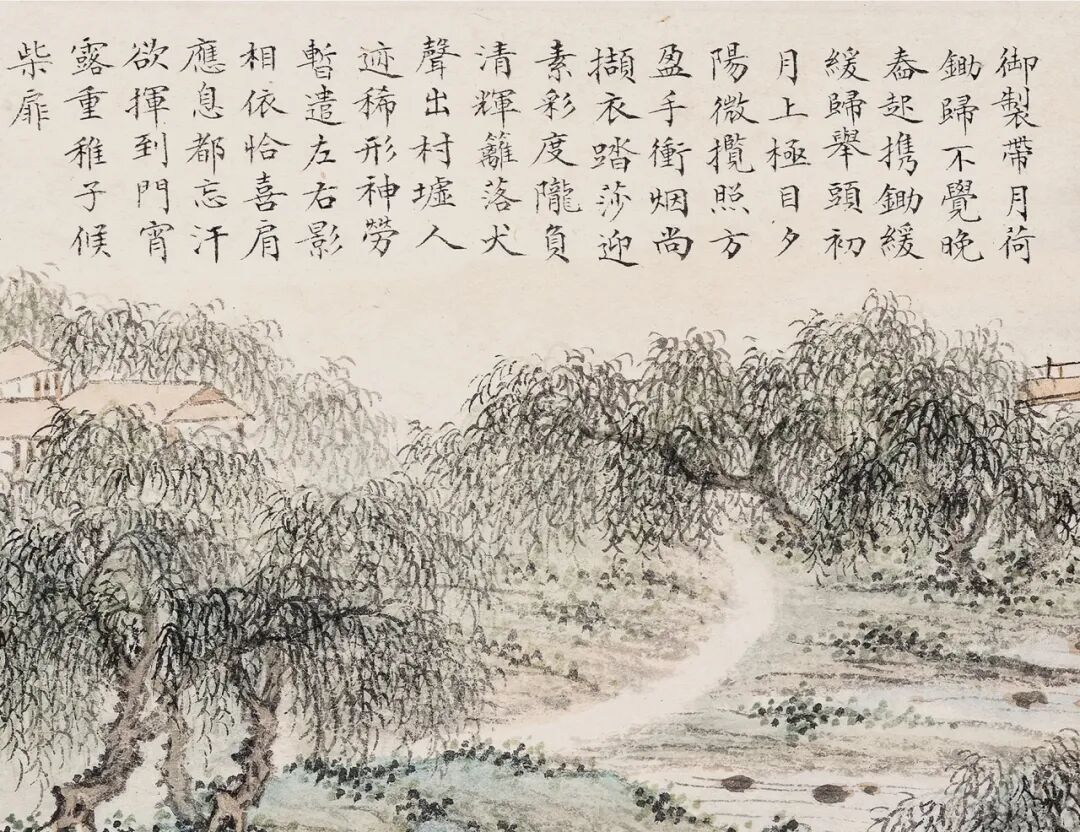 御製帶月荷
鋤歸不覺晚
畚起携鋤緩
緩歸舉頭初
月上極目夕
陽微攬照方
盈手衝烟尚
擷衣踏莎迎
素彩度隴負
清輝籬落犬
聲出村墟人
迹稀形神勞
暫遣左右影
相依恰喜肩
應息都忘汗
欲揮到門宵
露重稚子候
柴扉